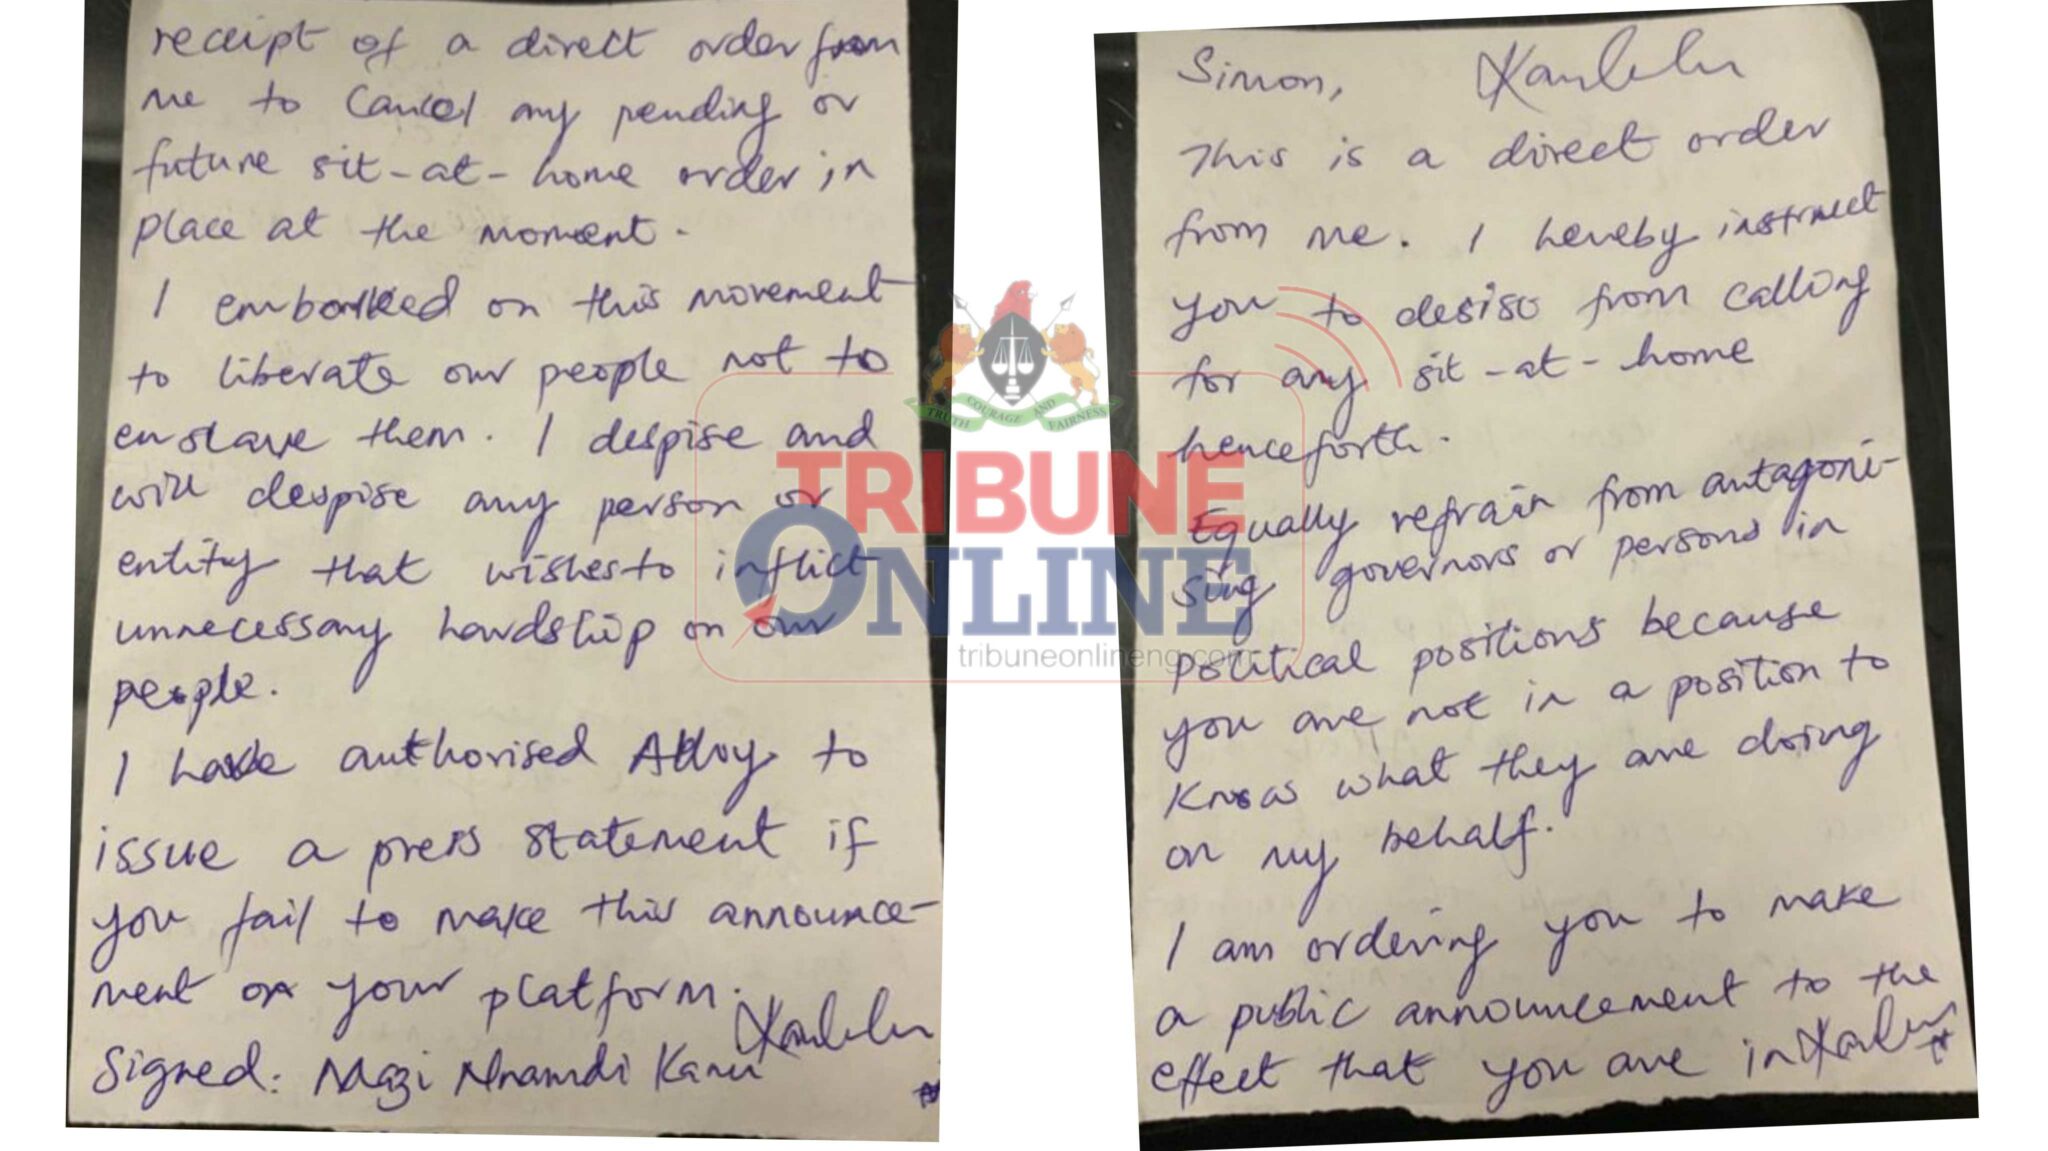 receipt of a direct order from
me to cancel any pending or
future sit-at-home order in
place at the moment.
I embarked on this movement
to liberate our people not to
enslave them. I despise and
will despise any person or
entity that wishes to inflict
unnecessary hardship on our
people.
I have authorised Alloy to
issue a press statement if
you fail to make this announce-
ment on your platform.
Signed: Mazi Nnamdi Kanu
Simon,
This is a direct order
from me. I hereby instruct
you to desist from calling
for any sit-at-home
henceforth.
Equally refrain from antagoni-
sing governors or persons in
political positions because
you are not in a position to
know what they are doing
on my behalf.
I am ordering you to make
a public announcement to the
effect that you are in
TRUTH COURAGE AND FAIRNESS
TRIBUNE
ONLINE
tribuneonlineng.com